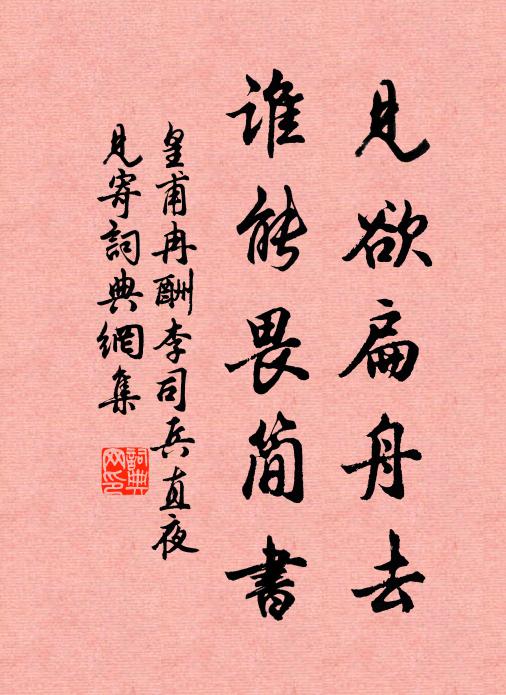 見欲扁舟去
誰能畏簡書
皇甫冉酬李司兵直夜
見寄詞典網集
詞典網印